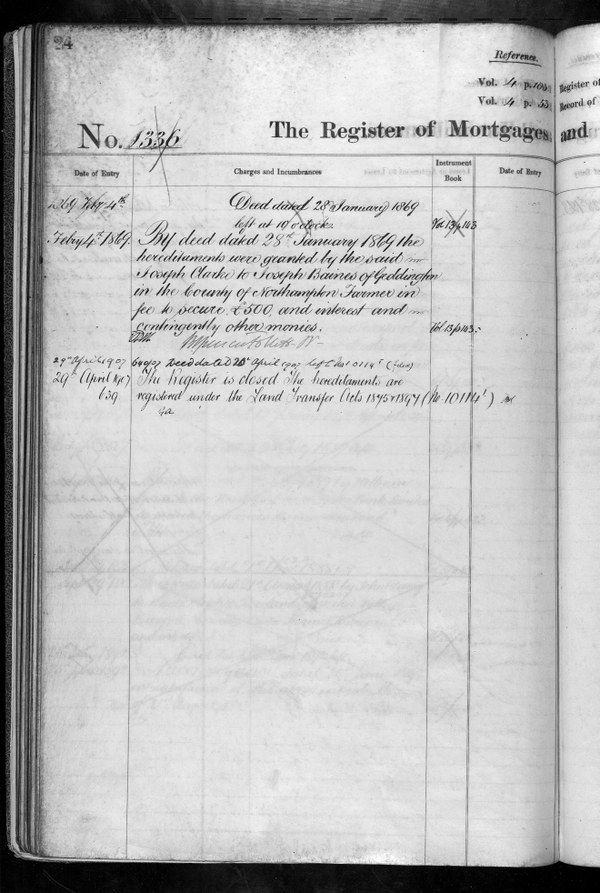 24
Reference.
Vol. 4 p. 104
Vol. 4 p. 55
Register of
Record of
No. 1336
The Register of Mortgages, and
Date of Entry
Charges and Incumbrances
Instrument Book
Date of Entry
1869 Feby 4th
Deed dated 28 January 1869
left at 10 o'clock
Vol 13 p 143
Febry 4th 1869.
By deed dated 28th January 1869 the
hereditaments were granted by the said
Joseph Clarke to Joseph Baines of Geddington
in the County of Northampton Farmer in
fee to secure £500, and interest and
contingently other monies.
Vol 13 p 143
29th April 1907
Deed dated 26th April 1907 left No 10114
29th April 1907
639
The Register is closed The hereditaments are
registered under the Land Transfer Acts 1875 & 1897 (No. 10114)